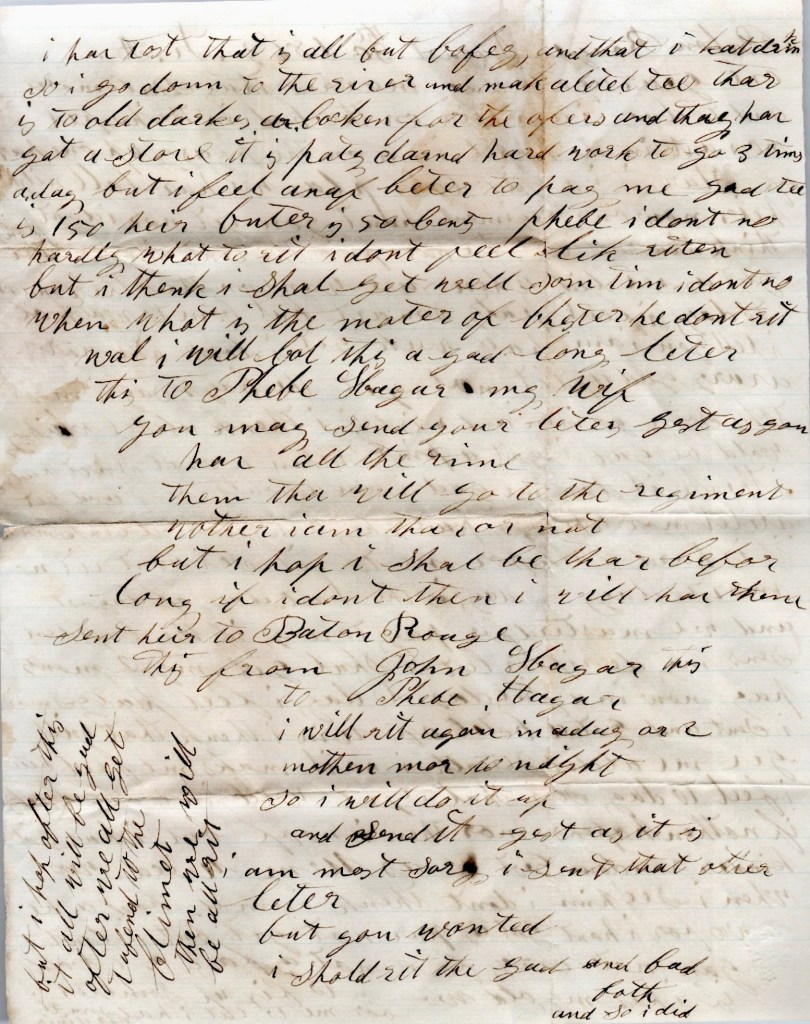 i har tost that is all but bofey and that i kat drink
so i go down to the river and mak a litel tee thar
is to old darkes a cocken for the ofers and thay har
got a stove it is paty darnd hard work to go 3 tims
a day but i feel anaf beter to pay me god tee
is 150 heir buter is 50 cents phebe i dont no
hardly what to rit i dont feel lik riten
but i thenk i shal get well som tim i dont no
when what is the mater of he dont rit
wal i will col this a god long leter
this to Phebe Hagar my Wif
you may send your leters gest as you
har all the time
them tha will go to the regiment
wother i am thar or not
but i hop i shal be thar befor
long if i dont then i will har them
sent heir to Baton Rouge
this from John Hagar this
to Phebe Hagar
i will rit agan in a day or 2
nothen mor to night
so i will do it up
and send it gest as it is
i am most sory i sent that other
leter
but you wanted
i shold rit the god and bad
both
and so i did
but i hop after this
it all will be god
after we all get
to the
climet
then we will
be all rit